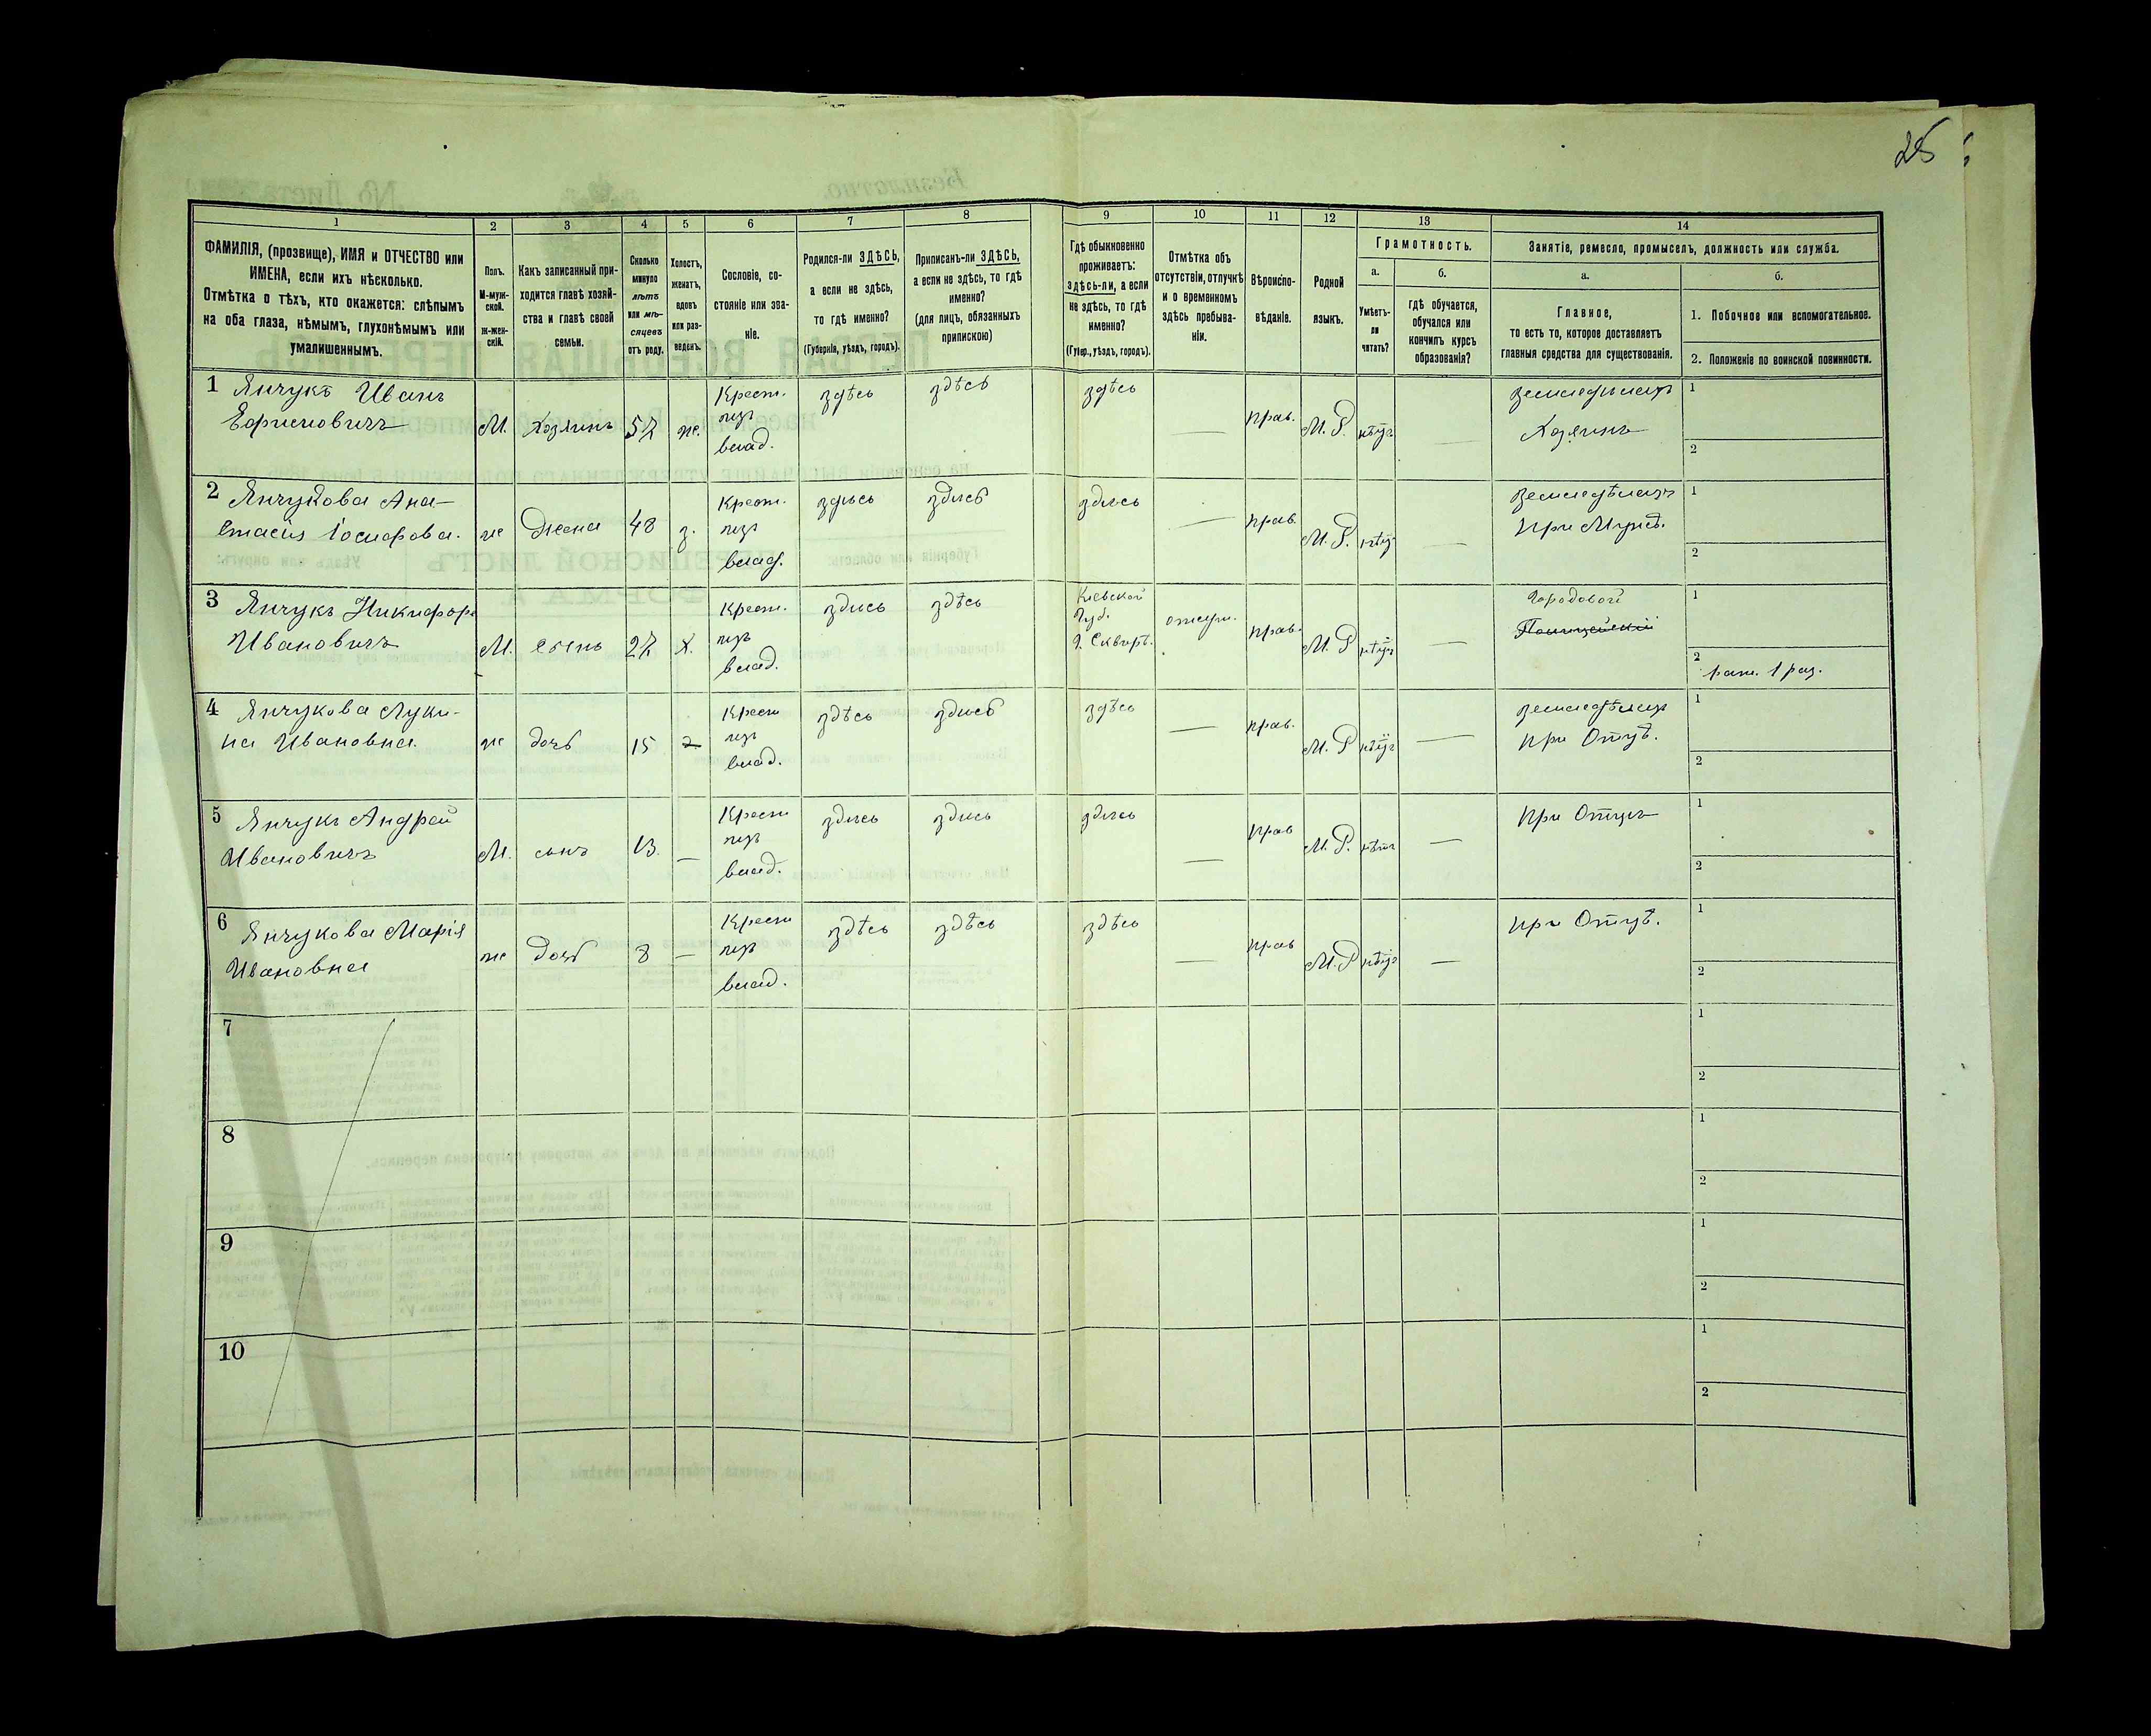 25
1 2 3 4 5 6 7 8 9 10 11 12 13 14
ФАМИЛІЯ, (прозвище), ИМЯ и ОТЧЕСТВО или
ИМЕНА, если ихъ нѣсколько.
Отмѣтка о тѣхъ, кто окажется: слѣпымъ
на оба глаза, нѣмымъ, глухонѣмымъ или
умалишеннымъ.
Полъ.
М-муж-
ской.
ж-жен-
скій.
Какъ записанный при-
ходится главѣ хозяй-
ства и главѣ своей
семьи.
Сколько
минуло
лѣтъ
или мѣ-
сяцевъ
отъ роду.
Холостъ,
женатъ,
вдовъ
или раз-
веденъ.
Сословіе, со-
стояніе или зва-
ніе.
Родился-ли ЗДѢСЬ,
а если не здѣсь,
то гдѣ именно?
(Губернія, уѣздъ, городъ).
Приписанъ-ли ЗДѢСЬ,
а если не здѣсь, то гдѣ
именно?
(для лицъ, обязанныхъ
припискою)
Гдѣ обыкновенно
проживаетъ:
здѣсь-ли, а если
не здѣсь, то гдѣ
именно?
(Губер., уѣздъ, городъ).
Отмѣтка объ
отсутствіи, отлучкѣ
и о временномъ
здѣсь пребыва-
ніи.
Вѣроиспо-
вѣданіе.
Родной
языкъ.
Грамотность.
а.
Умѣетъ-
ли
читать?
б.
гдѣ обучается,
обучался или
кончилъ курсъ
образованія?
Занятіе, ремесло, промыселъ, должность или служба.
а.
Главное,
то есть то, которое доставляетъ
главныя средства для существованія.
б.
1. Побочное или вспомогательное.
2. Положеніе по воинской повинности.
1 Янчукъ Иванъ
Ефимовичъ
М. Хозяинъ 52 же.
Крест.
изъ
влад.
здѣсь здѣсь здѣсь — прав. М. Р. нѣтъ —
земледѣлецъ
Хозяинъ
1
2
2 Янчукова Ана-
стасія Іосифова.
же жена 48 з.
Крест.
изъ
влад.
здѣсь здѣсь здѣсь — прав. М. Р. нѣтъ —
земледѣлецъ
при Мужѣ.
1
2
3 Янчукъ Никифоръ
Ивановичъ
М. сынъ 22 х.
Крест.
изъ
влад.
здѣсь здѣсь
Кіевской
Губ.
г. Сквирѣ.
прав. М. Р нѣтъ —
Городовой
Полицейскій
1
2 рат. 1 раз.
4 Янчукова Луки-
на Ивановна.
же дочь 15
Крест
изъ
влад.
здѣсь здѣсь здѣсь — прав. М. Р нѣтъ —
земледѣлецъ
при Отцѣ.
1
2
5 Янчукъ Андрей
Ивановичъ
М. сынъ 13. —
Крест
изъ
влад.
здѣсь здѣсь здѣсь — прав М. Р. нѣтъ —
при Отцѣ
1
2
6 Янчукова Марія
Ивановна
же дочь 8 —
Крест
изъ
влад.
здѣсь здѣсь здѣсь — прав М. Р нѣтъ —
при Отцѣ.
1
2
7
1
2
8
1
2
9
1
2
10
1
2